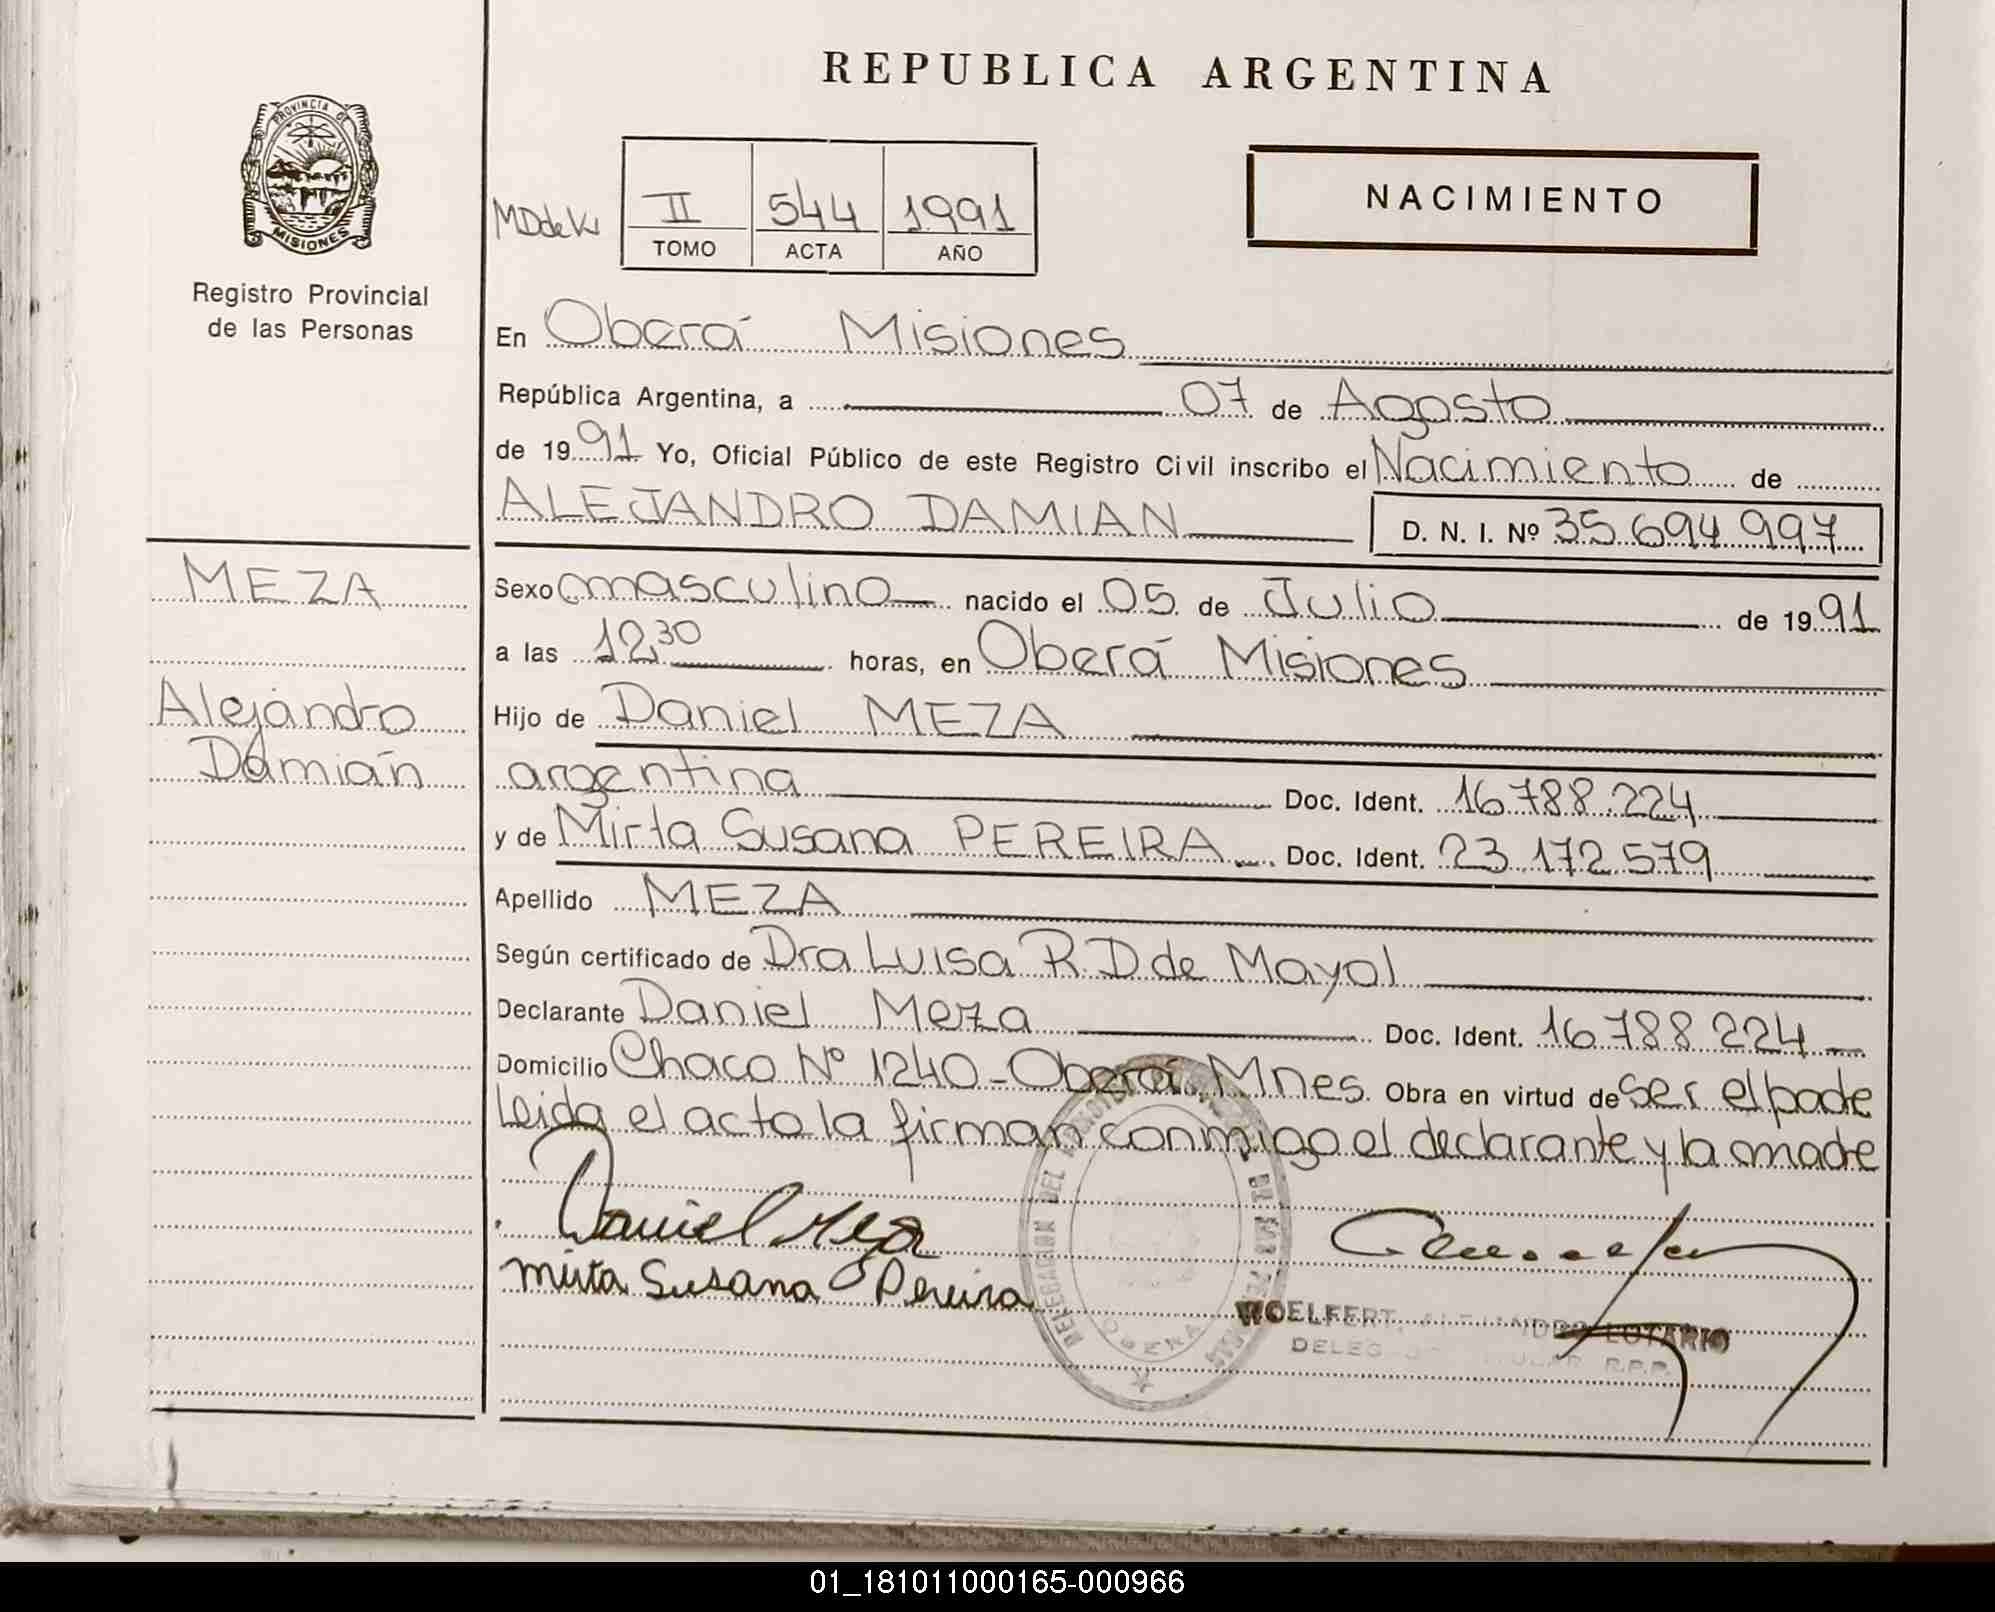 REPUBLICA ARGENTINA
PROVINCIA DE
MISIONES
Registro Provincial
de las Personas
NACIMIENTO
MDdeK
II 544 1991
TOMO ACTA AÑO
En Oberá Misiones
República Argentina, a 07 de Agosto
de 1991 Yo, Oficial Público de este Registro Civil inscribo el Nacimiento de
ALEJANDRO DAMIAN D. N. I. Nº 35.694.997
MEZA
Alejandro
Damián
Sexo masculino nacido el 05 de Julio de 1991
a las 12,30 horas, en Oberá Misiones
Hijo de Daniel MEZA
argentina Doc. Ident. 16.788.224
y de Mirta Susana PEREIRA Doc. Ident. 23.172.579
Apellido MEZA
Según certificado de Dra Luisa R. D de Mayol
Declarante Daniel Meza Doc. Ident. 16.788.224
Domicilio Chaco Nº 1240 - Oberá, Mnes. Obra en virtud de ser el padre
Leida el acta la firman conmigo el declarante y la madre
Daniel Meza
Mirta Susana Pereira
DELEGACION DEL DE LAS
WOELFERT, ALEJANDRO LOTARIO
R.P.P.
01_181011000165-000966